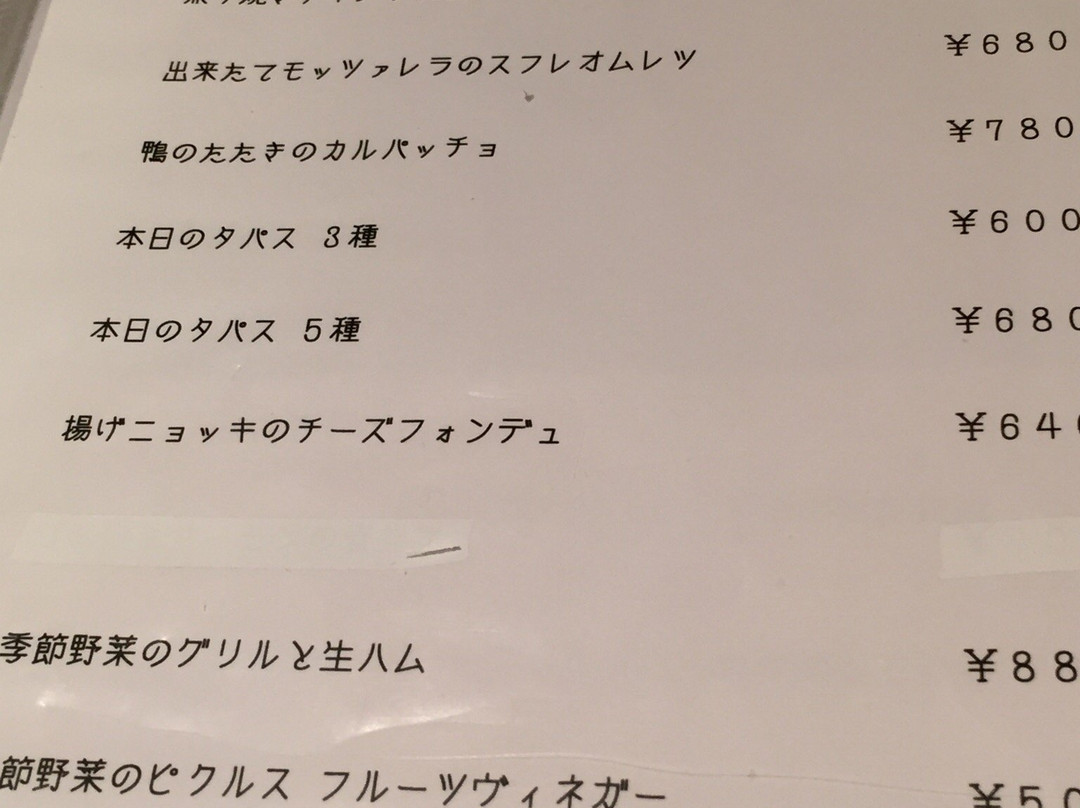 出来たてモッツァレラのスフレオムレツ ￥６８０
鴨のたたきのカルパッチョ ￥７８０
本日のタパス ３種 ￥６００
本日のタパス ５種 ￥６８０
揚げニョッキのチーズフォンデュ ￥６４０
季節野菜のグリルと生ハム ￥８８
節野菜のピクルス フルーツヴィネガー ￥５０